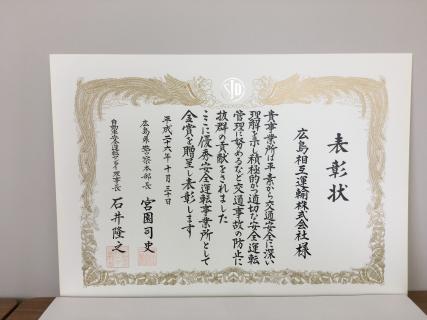 表彰状
広島相互運輸株式会社様
貴事業所は平素から交通安全に深い
理解を示し積極的かつ適切な安全運転
管理に努めるなど交通事故の防止に
抜群の貢献をされました
ここに優秀安全運転事業所として
金賞を贈呈し表彰します
平成二十六年十月三十日
広島県警察本部長 宮園司史
自動車安全運転センター理事長 石井隆之